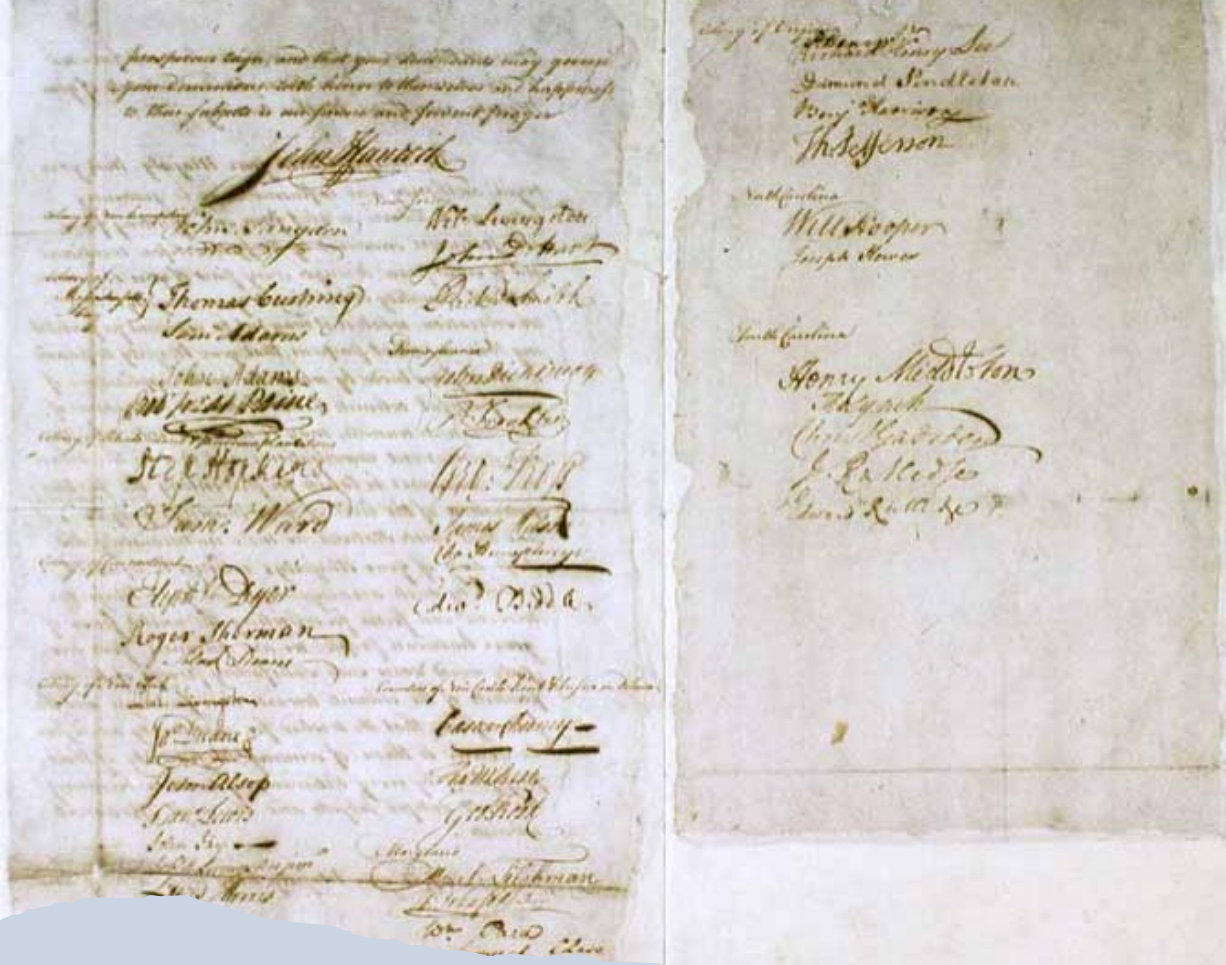 prosperous reign, and that your descendants may govern
your dominions with honor to themselves and happiness
to their subjects is our sincere and fervent prayer
John Hancock
Colony of New Hampshire
John Langdon
Colony of
Thomas Cushing
Sam Adams
John Adams
Rob Treat Paine
Colony of Rhode
Step Hopkins
Sam: Ward
Colony of Connecticut
Elipht Dyer
Roger Sherman
Silas Deane
Colony of New York
Jas Duane
John Alsop
Fras Lewis
John Jay
Lewis Morris
New Jersey
Wil: Livingston
John De Hart
Richd Smith
Pennsylvania
John Dickinson
B Franklin
Geo: Ross
James Wilson
Chas Humphreys
Edwd Biddle
Counties of New Castle Kent & Sussex on Delaware
Caesar Rodney
Tho M:Kean
Geo Read
Maryland
Mat Tilghman
Wm Paca
Colony of Virginia
P Henry Jr
Richard Henry Lee
Edmund Pendleton
Benj Harrison
Th: Jefferson
North Carolina
Will Hooper
Joseph Hewes
South Carolina
Henry Middleton
Tho Lynch
Christ Gadsden
J. Rutledge
Edward Rutledge